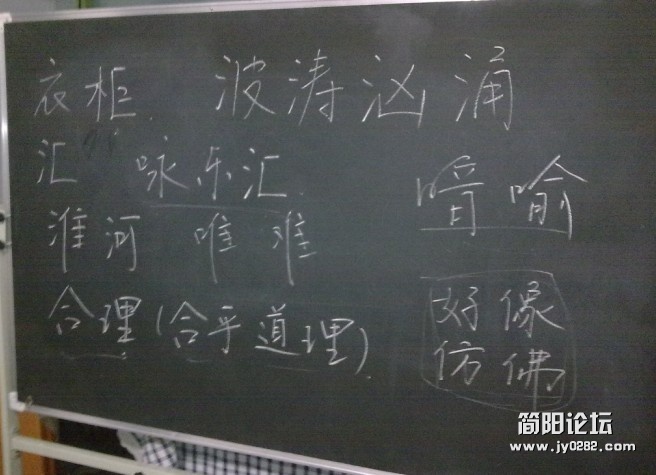 衣柜. 波涛汹涌
汇 咏乐汇.
暗喻
淮河 唯 难
合理(合乎道理).
好像
仿佛
简阳论坛
www.jy0282.com